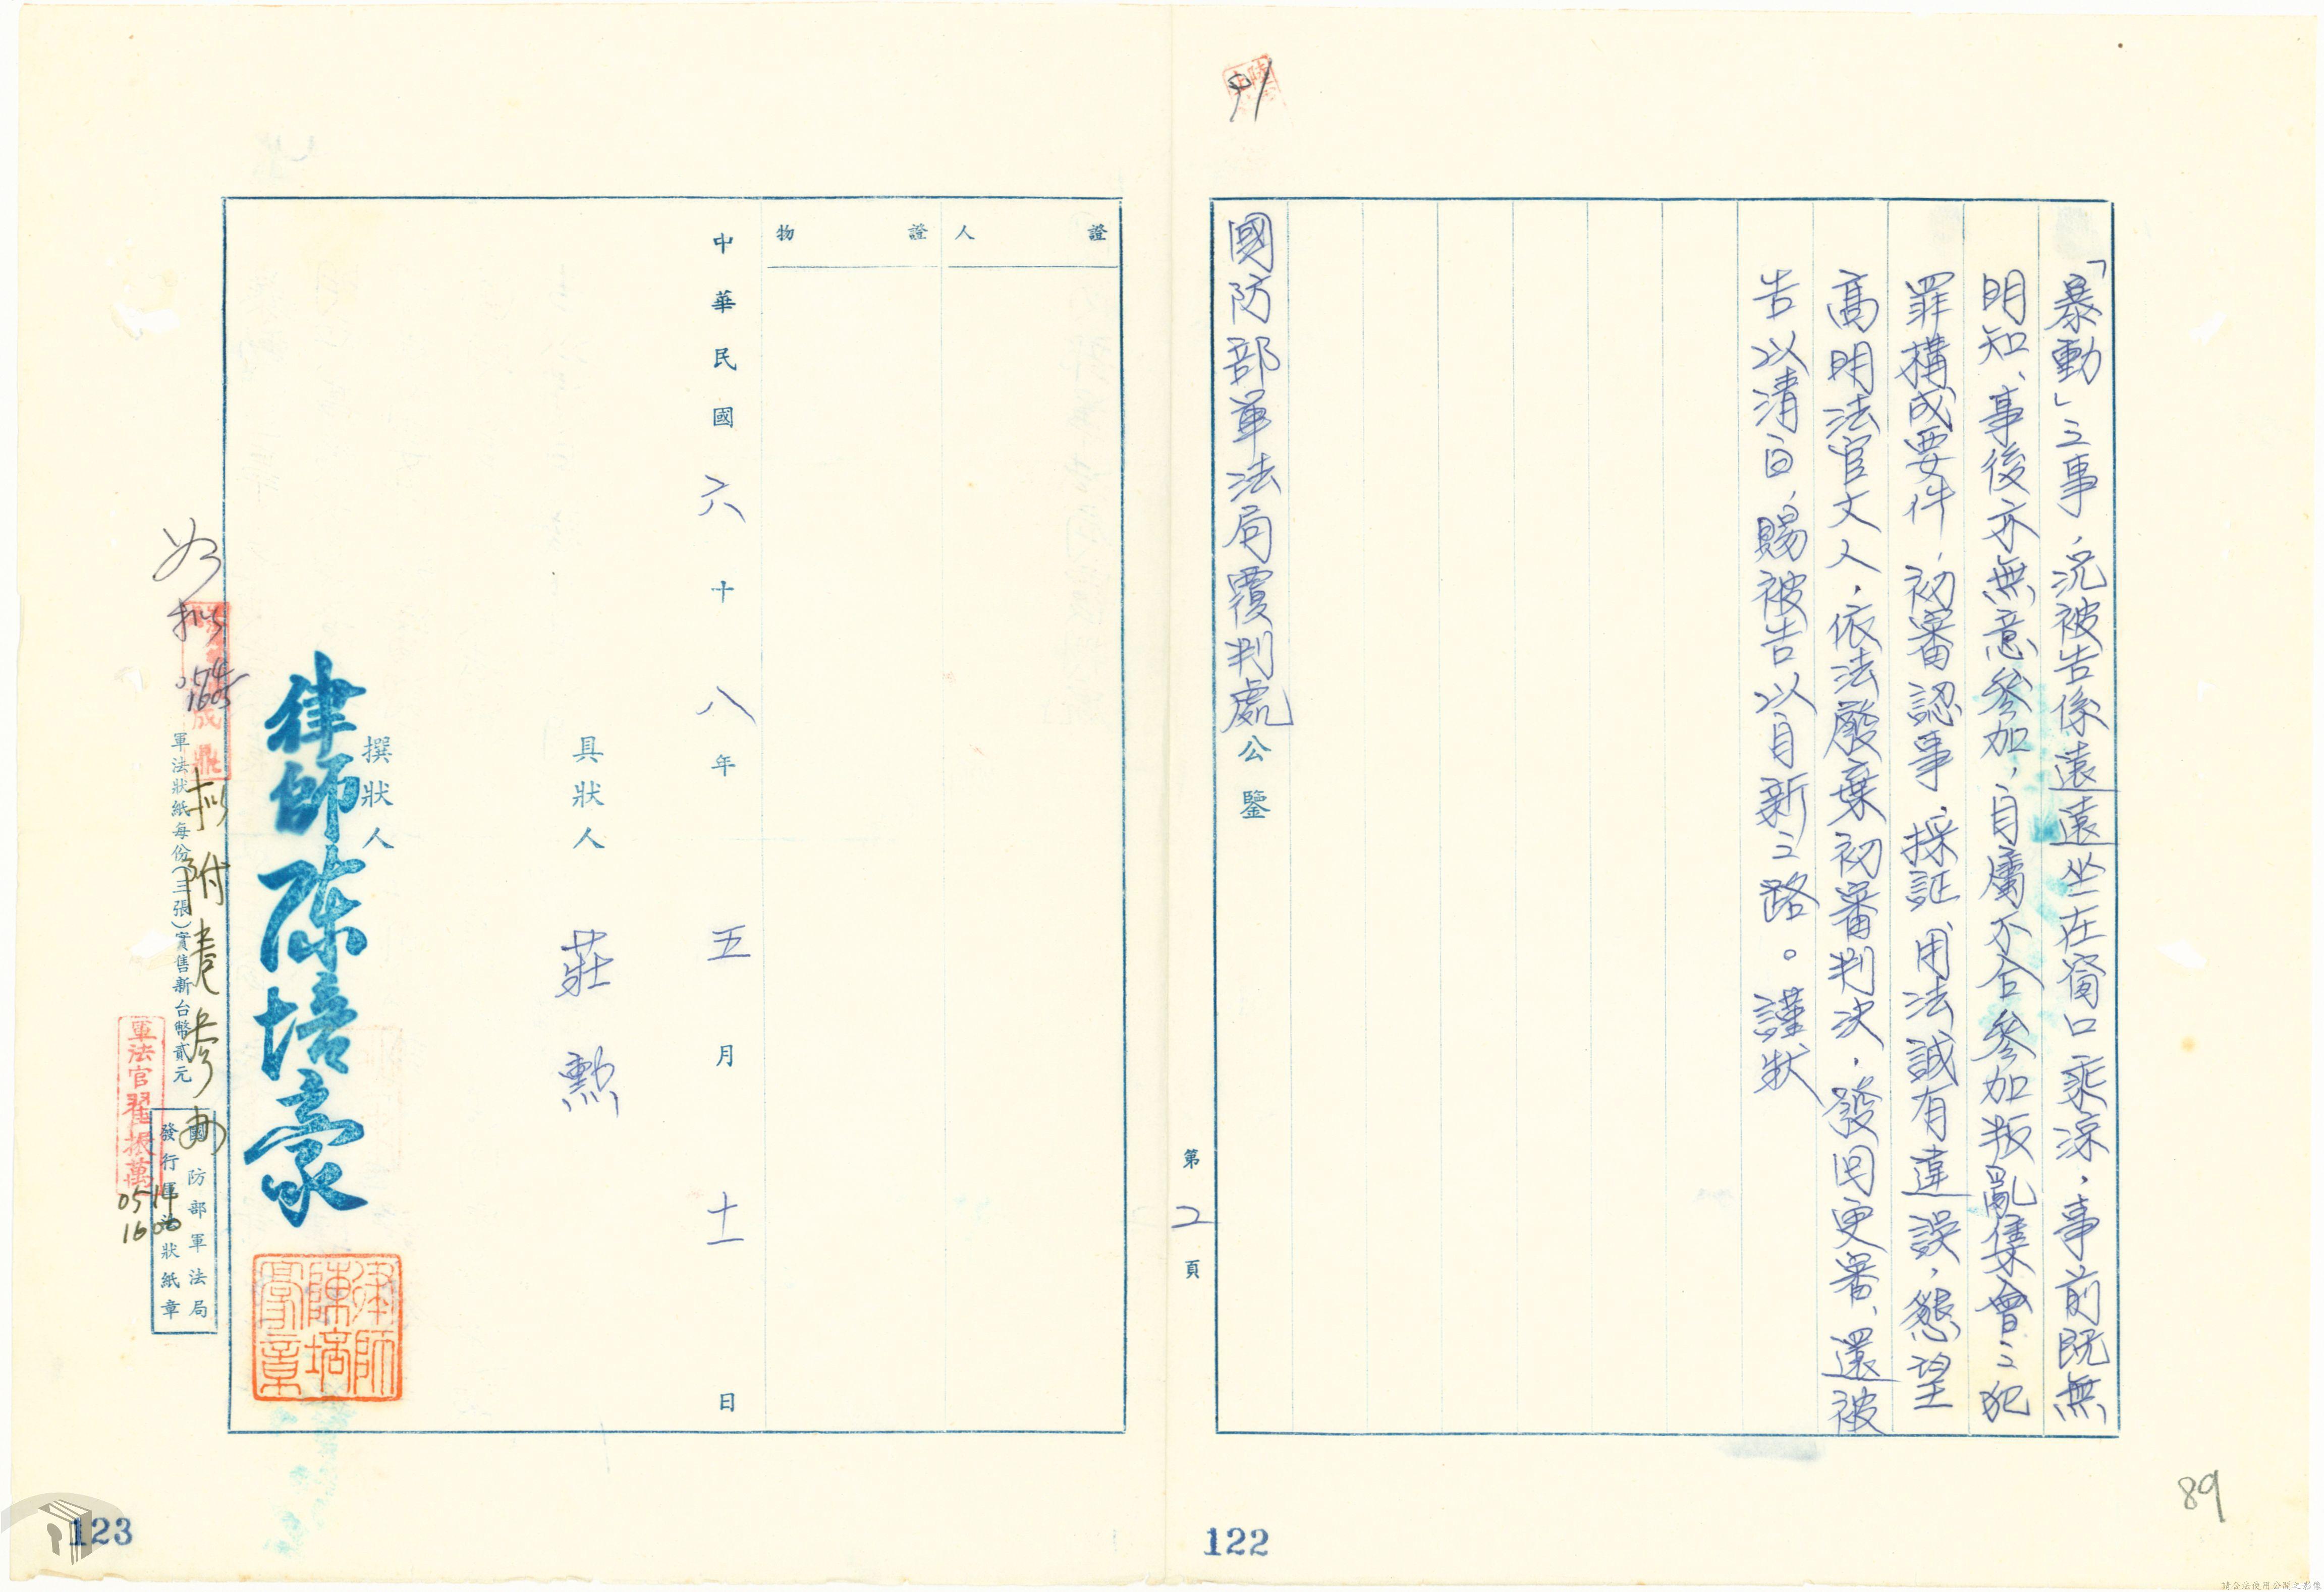 「暴動」之事，況被告係遠遠坐在窗口乘涼，事前既無
明知、事後亦無意參加，自屬不合參加叛亂集會之犯
罪構成要件，初審認事，採証、用法誠有違誤，懇望
高明法官文人，依法廢棄初審判決，發回更審、還被
告以清白，賜被告以自新之路。謹狀
國防部軍法局覆判處公鑒
第2頁
89
122
證人
證物
中華民國六十八年五月十一日
具狀人 莊勲
撰狀人
律師陳培豪
律師陳培豪章
軍法狀紙每份(三張)實售新台幣貳元
國防部軍法局
發行軍法狀紙章
擬附卷參办
軍法官翟振萬
0514
1600
如擬
1605
123
請合法使用公開之影像